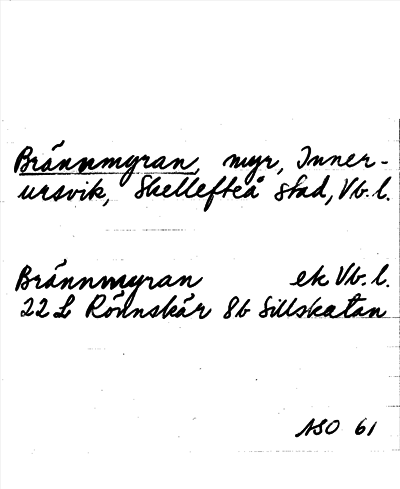 Brännmyran, myr, Inner-
ursvik, Skellefteå stad, Vb. l.
Brännmyran ek Vb. l.
22 L Rönnskär 8b Sillskatan
ASO 61